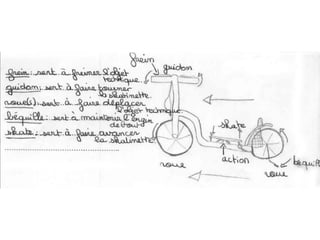 frein
guidon
frein : sert à freiner l'objet
technique.
guidon : sert à faire tourner
la skatinette.
roue(s) : sert à faire déplacer
l'objet technique
béquille : sert à maintenir l'engin
debout
skate : sert à faire avancer
la skatinette.
skate
action
roue
roue
béquille